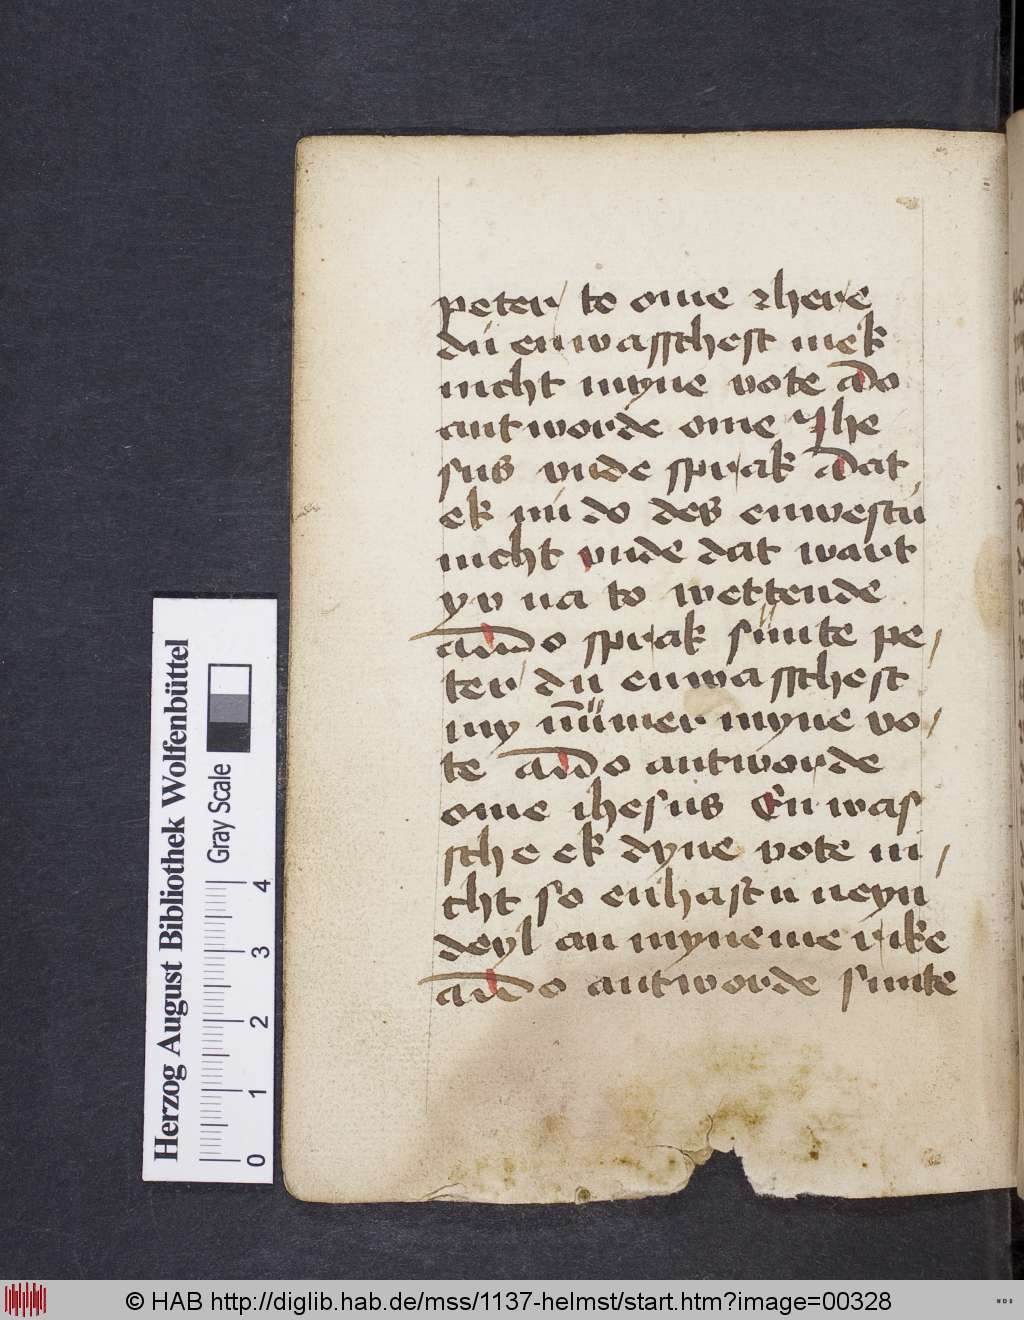 peter to ome here
du enwasschest mek
nicht myne vote do
antworde ome Ihe
sus vnde sprak dat
ek nu do des enwestu
nicht vnde dat wart
yv na to wettende
do sprak sunte pe/
ter du enwasschest
my nummer myne vo/
te do antworde
ome ihesus En was
sche ek dyne vote ni/
cht so enhastu neyn
deyl an myneme rike
do antworde sunte
Herzog August Bibliothek Wolfenbüttel
Gray Scale
0 1 2 3 4
© HAB http://diglib.hab.de/mss/1137-helmst/start.htm?image=00328